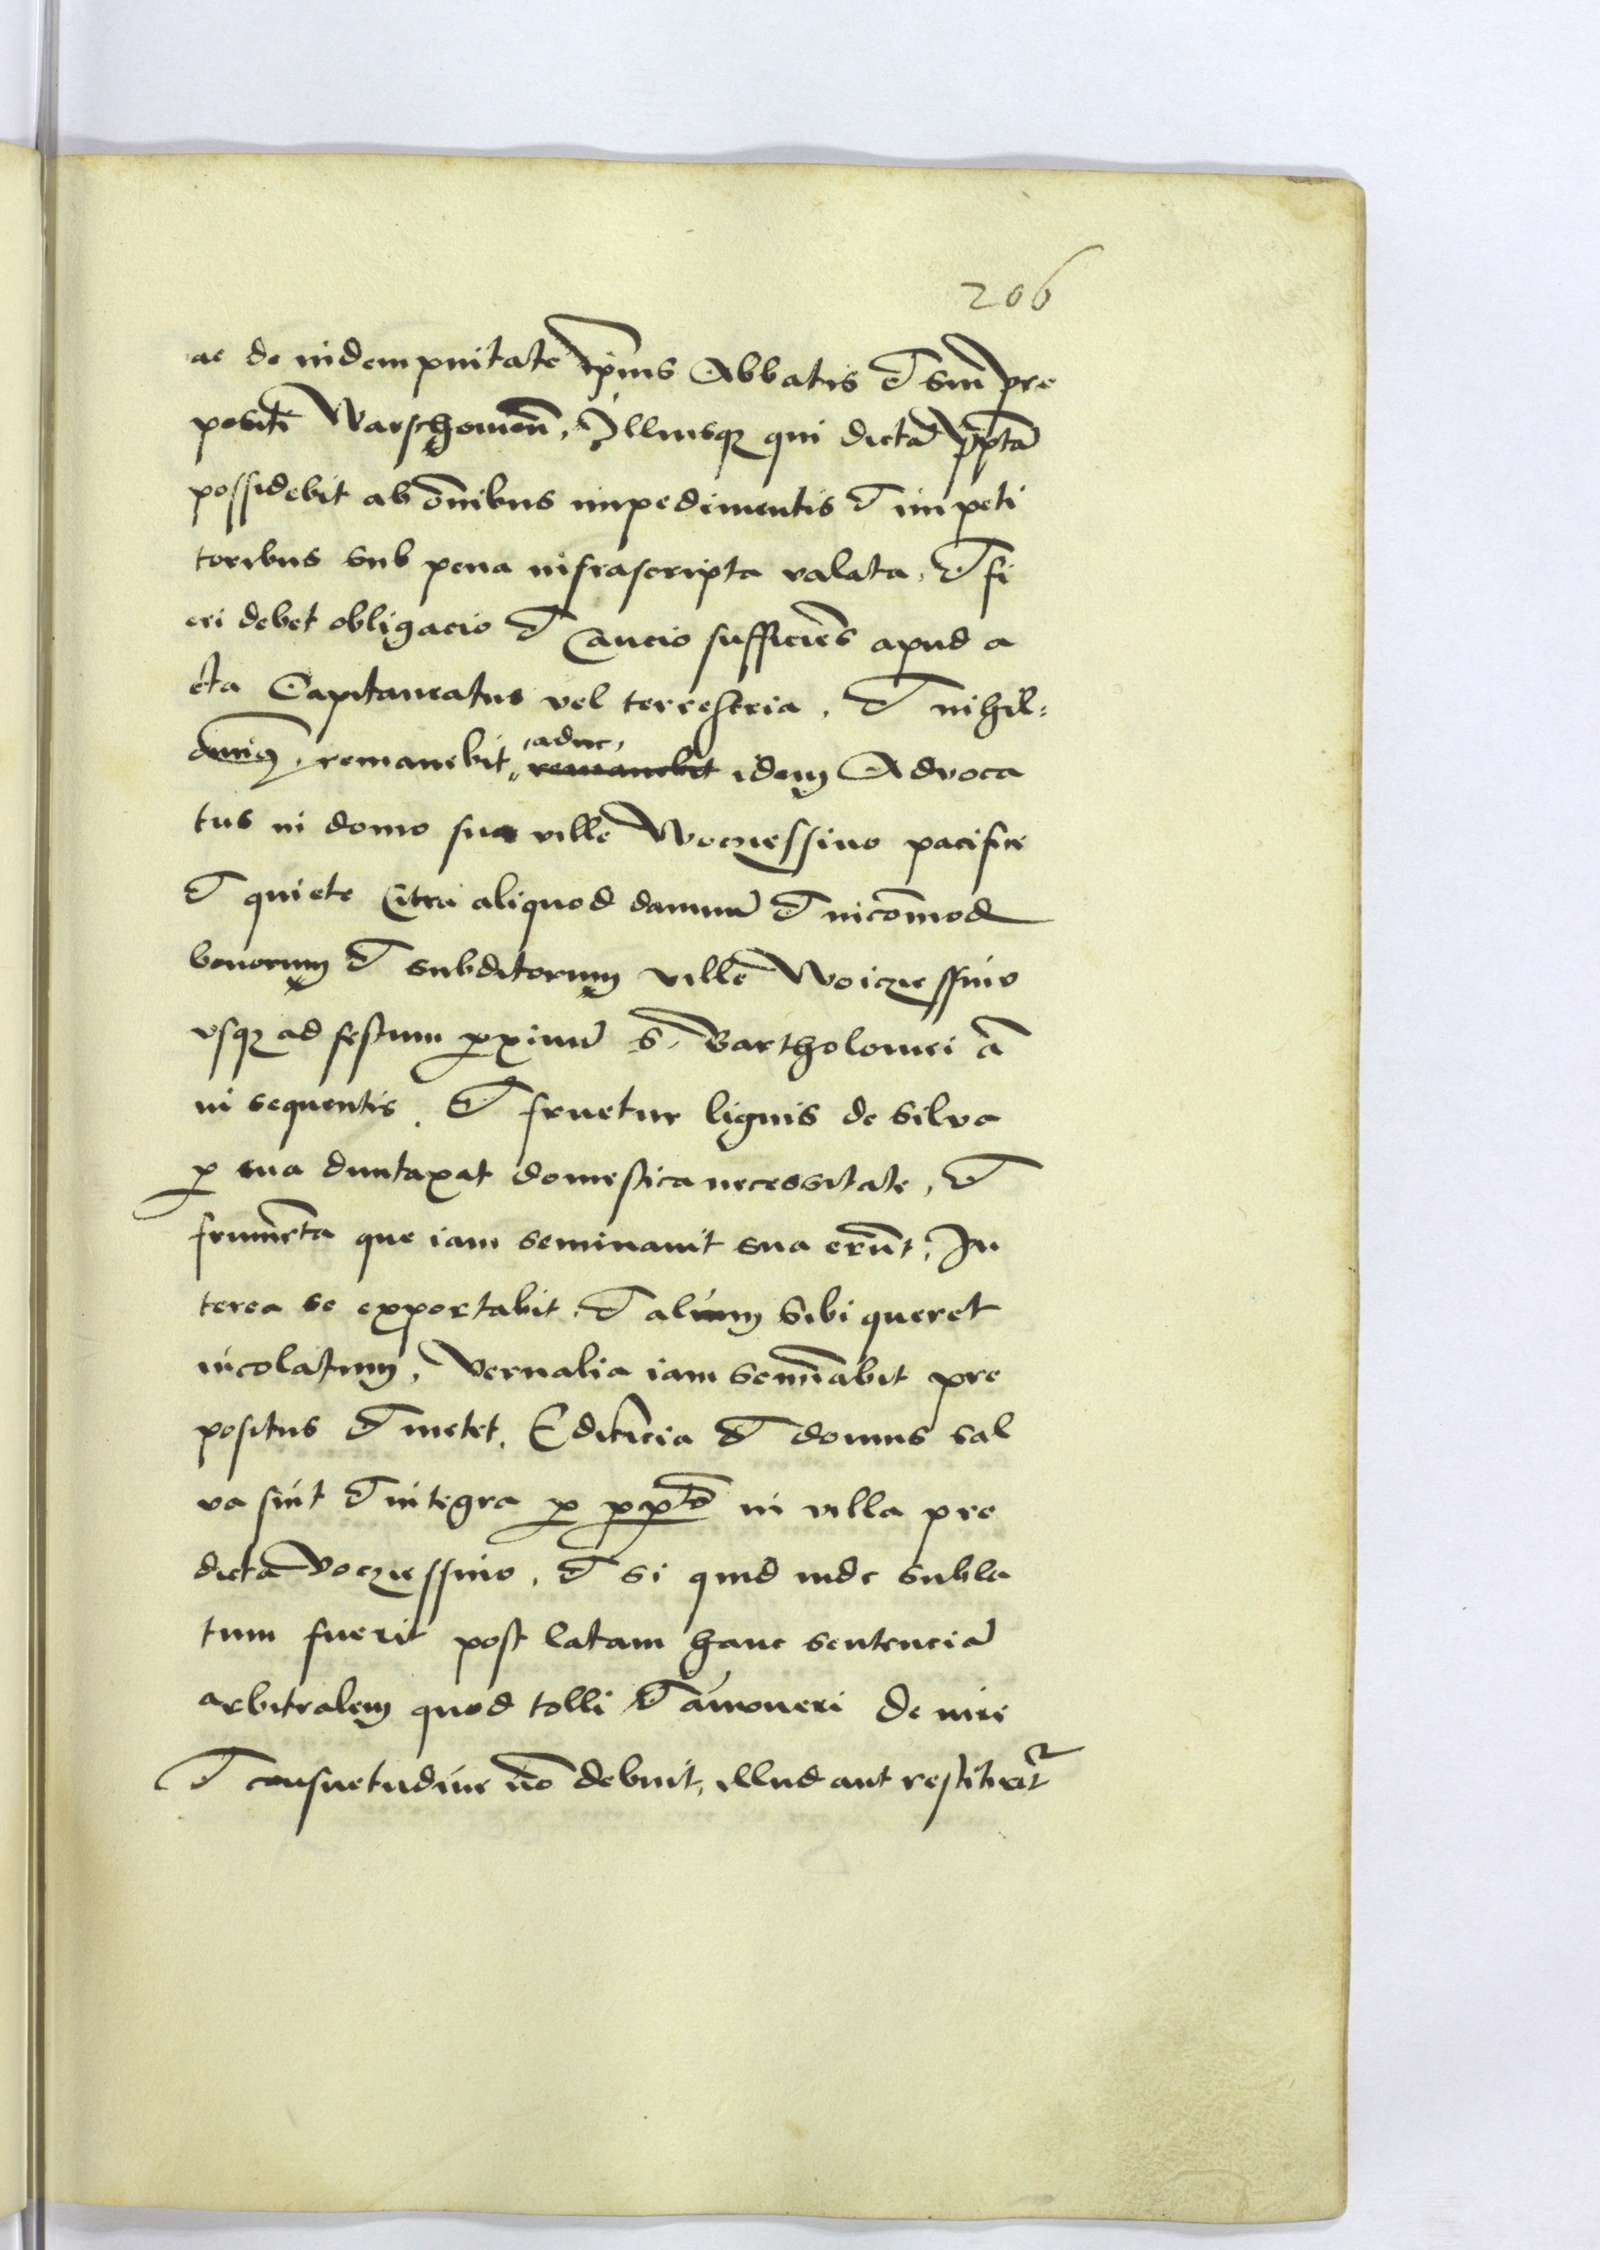 206
ac de indempnitate ip̄ius Abbatis et sui pre
positi Warschouien̄, Illiusqꝫ qui dictā p̄ptā
possidebit ab om̄ibus impedimentis et impeti
toribus sub pena infrascripta valata, et fi
eri debet obligacio et Caucio sufficiēs apud a
cta Capitaneatus vel terrestria, et nihil=
ominꝰ, remanebit, adhuc, remanebit idem Advoca
tus in domo sua ville Woczessino pacifice
et quiete Citra aliquod damnū et incōmod
bonorum et subditorum ville Woiczessino
vsqꝫ ad festum ꝓximū S. Bartholomei ā
ni sequentis, Et fruetur lignis de silva
ꝓ sua duntaxat domestica necessitate, et
frumēta que iam seminauit sua erūt, In
terea se exportabit, et alium sibi queret
incolatum, Vernalia iam semīabit pre
positus et metet, Edificia et domus sal
va sint et integra ꝓ ꝓpto in villa pre
dicta Voczessino, et si quid inde subla
tum fuerit post latam hanc sentenciā
arbitralem quod tolli et amoueri de iure
et consuetudine nō debuit, illud aut restituet᷑